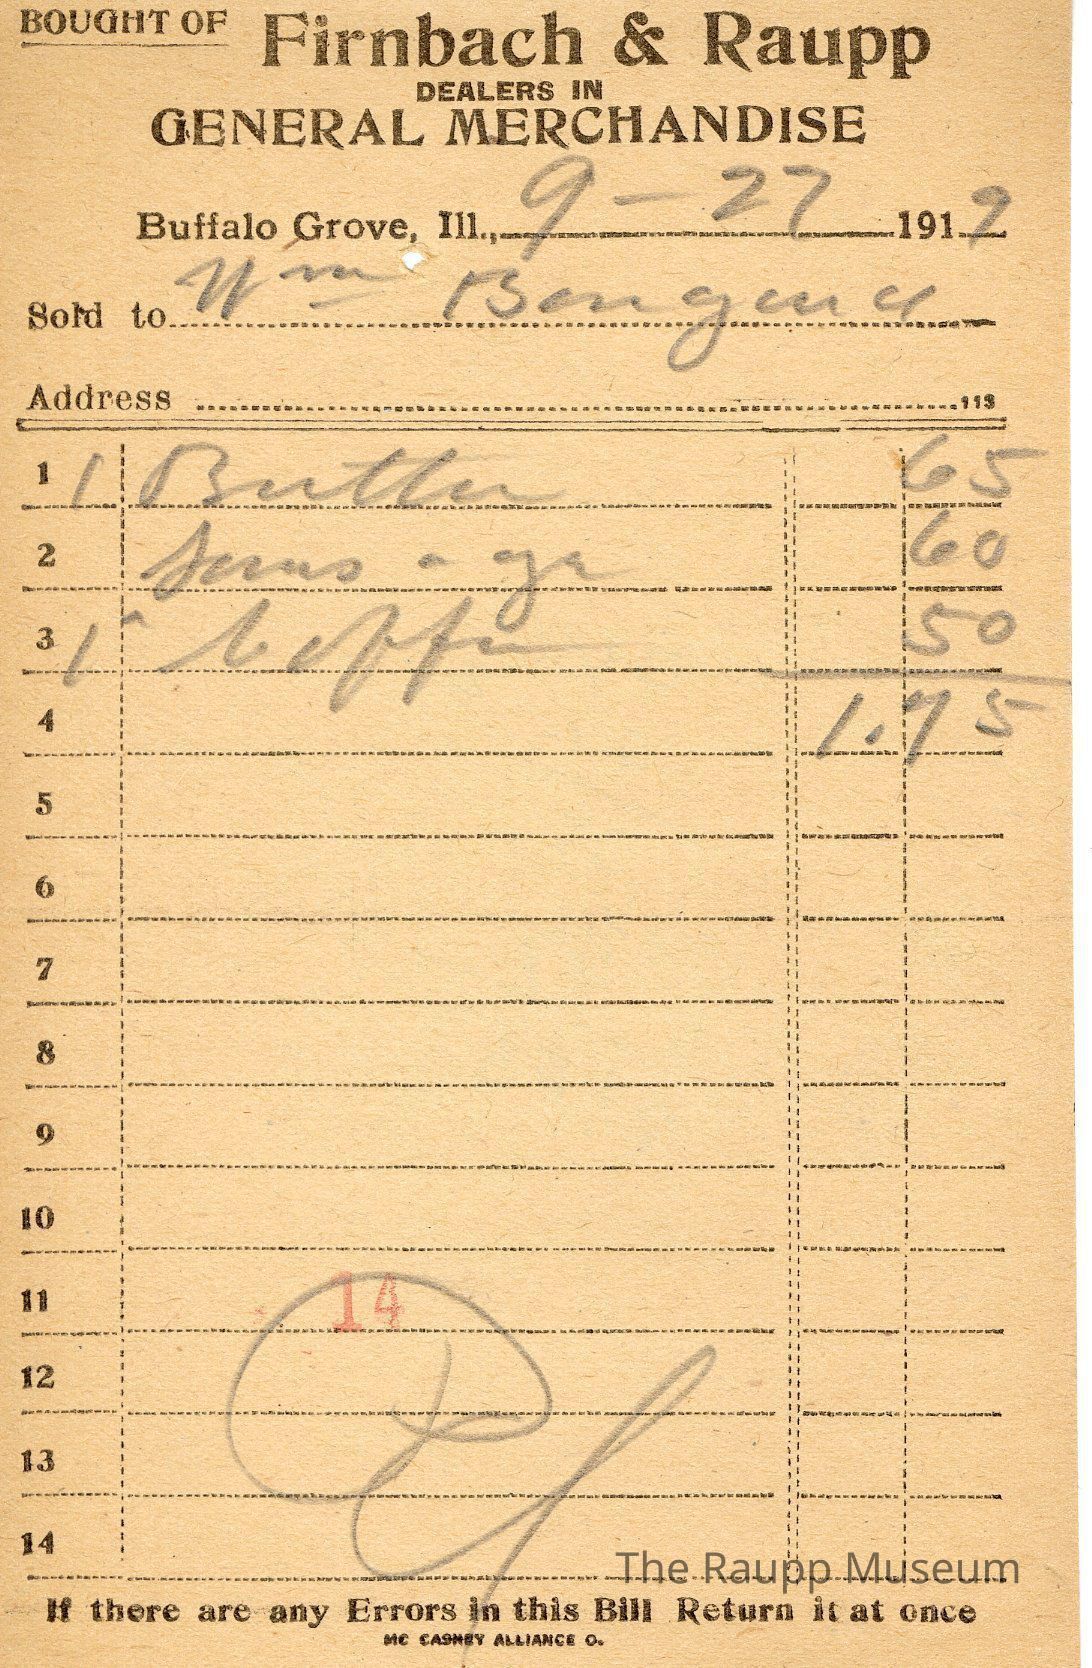 BOUGHT OF Firnbach & Raupp
DEALERS IN
GENERAL MERCHANDISE
Buffalo Grove, Ill., 9-27 1919
Sold to Wm
Address 113
1 1 Butter 65
2 Saus-age 60
3 1 Coffee 50
4 1.75
5
6
7
8
9
10
11 14
12
13
14
The Raupp Museum
If there are any Errors in this Bill Return it at once
MC CASKEY ALLIANCE O.